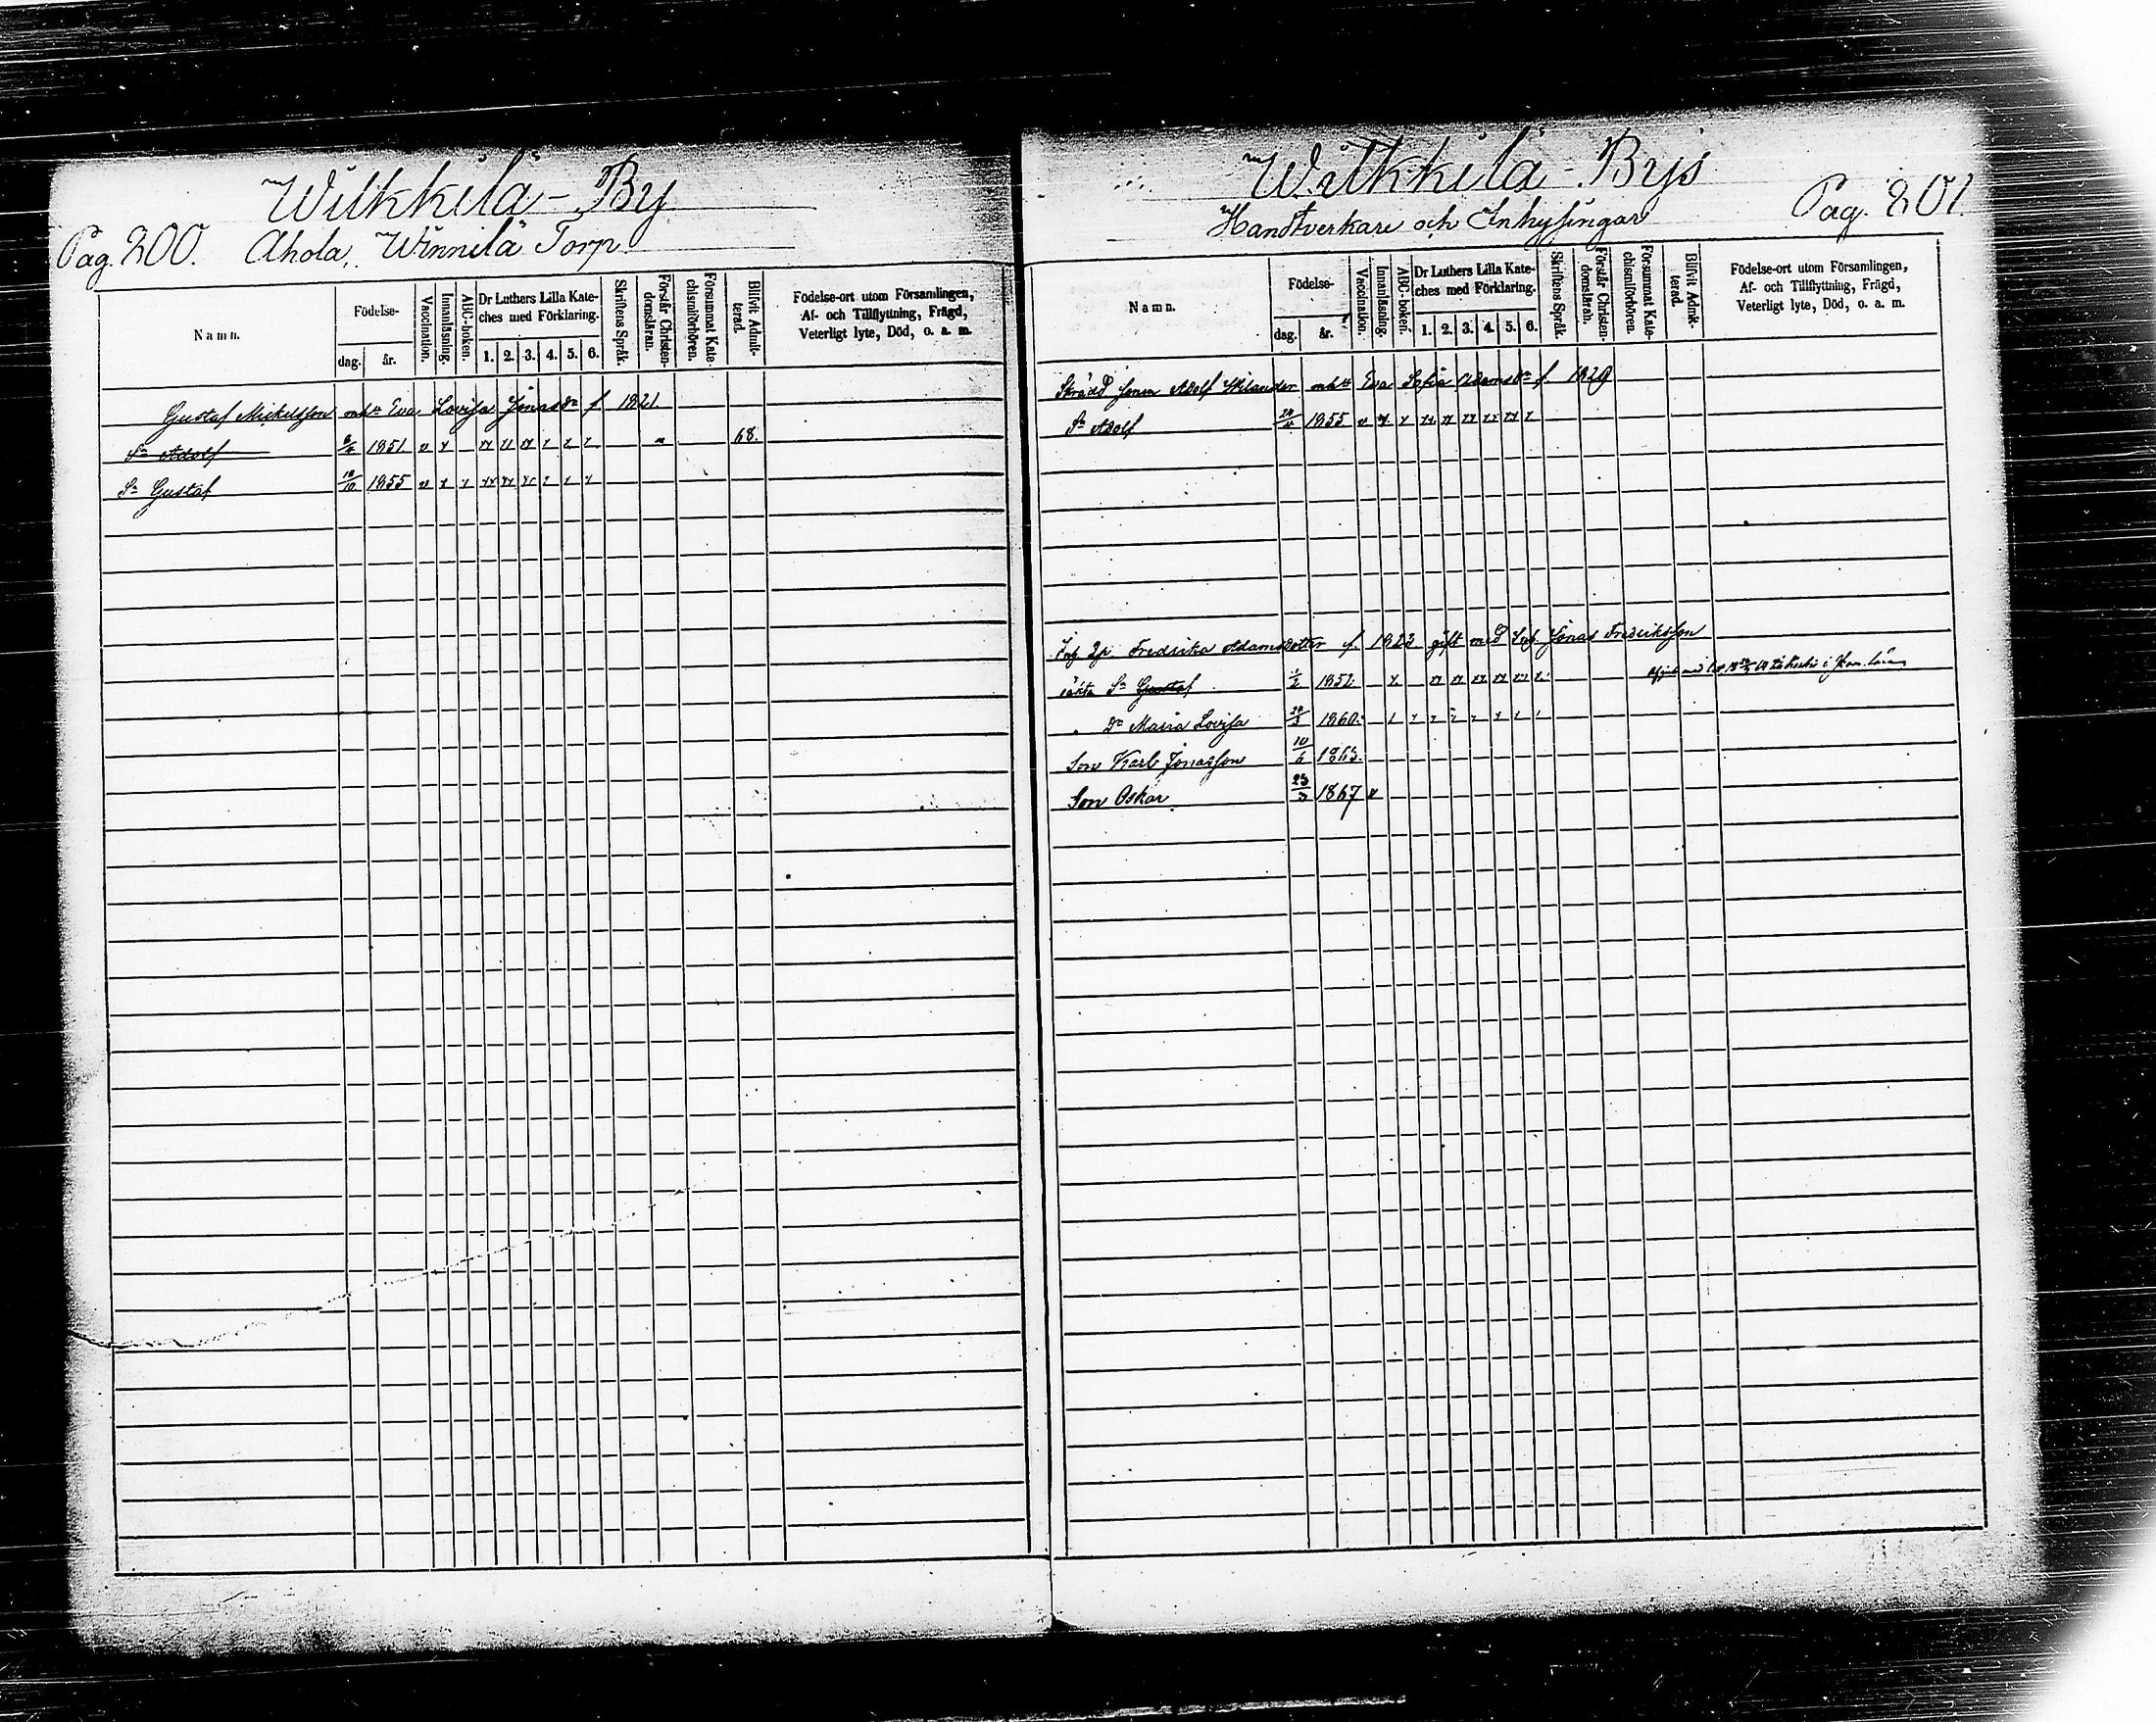 Wilkkilä - By
Pag. 200. Ahola, Winnilä Torp
Namn. Födelse- dag. år. Vaccination. Innanläsning. ABC-boken. Dr Luthers Lilla Kateches med Förklaring. 1. 2. 3. 4. 5. 6. Skriftens Språk. Förstår Christendomsläran. Försummat Katechismiförhören. Blifvit Admitterad. Födelse-ort utom Församlingen, Af- och Tillflyttning, Frägd, Veterligt lyte, Död, o. a. m.
Gustaf Mickelsson enka Eva Lovisa Jonasdr f 1821
Sn Adolf 1851 v 68.
Sn Gustaf 18/10 1855 v
Wilkkilä - Bys
Handtverkare och Inhysingar Pag. 201.
Namn. Födelse- dag. år. Vaccination. Innanläsning. ABC-boken. Dr Luthers Lilla Kateches med Förklaring. 1. 2. 3. 4. 5. 6. Skriftens Språk. Förstår Christendomslärah. Försummat Katechismiförhören. Blifvit Admitterad. Födelse-ort utom Församlingen, Af- och Tillflyttning, Frägd, Veterligt lyte, Död, o. a. m.
Skrädd Jonen Adolf Wilander Eva Sofia Adamsdr f. 1829
Sn Adolf 1855 v
Inh. Qp. Fredrika Adamsdotter f. 1822 gift med Inh. Jonas Fredriksson
oäkta Sn Gustaf 1/2 1852
Dr Maria Lovisa 1860
Son Karl Jonasson 10/6 1863
Son Oskar 23/3 1867 v